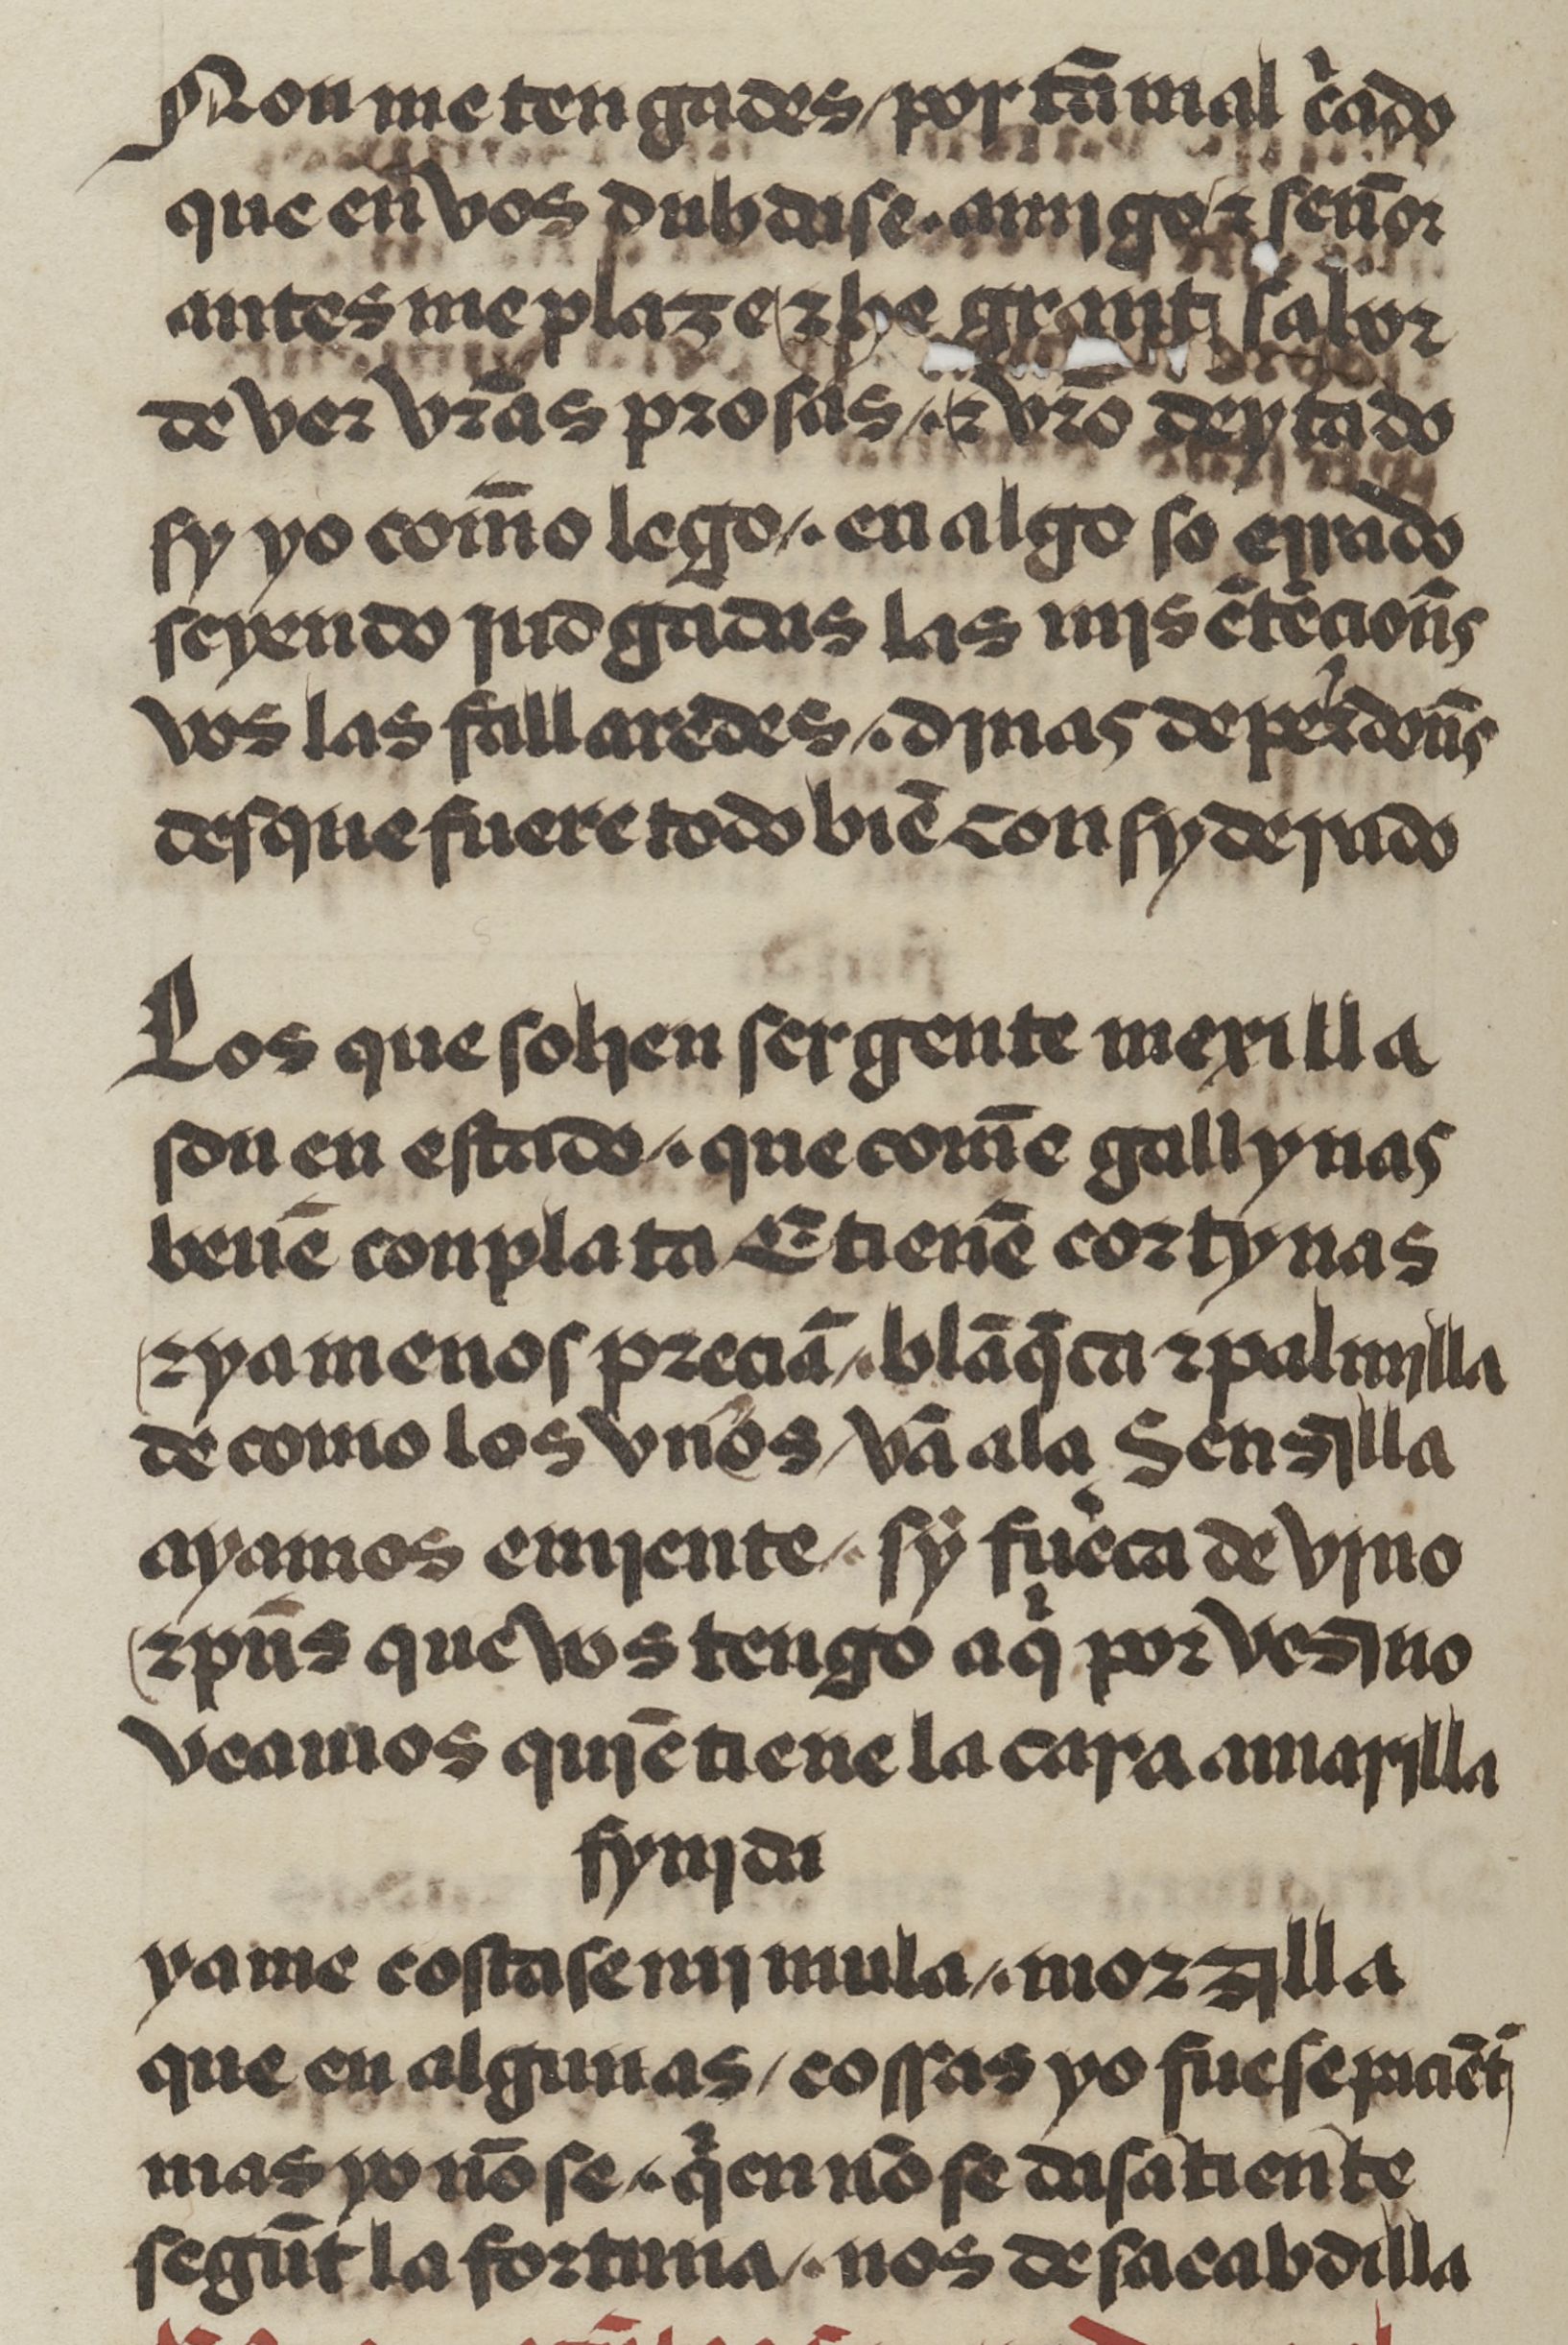 Non me tengades / por tã mal c̃ado
que en vos dubdase . amjgo ⁊ señor
antes me plaze ⁊ he grant sabor
de ver vr̃as prosas /. ⁊ vr̃o deytado
sy yo com̃o lego /. en algo so errado
seyendo judgadas las mjs ẽtẽcioñs
vos las fallaredes /. djnas de perdoñs
desque fuere todo biẽ consyderado
Los que solien ser gente mexilla
son en estado /. que com̃e gallynas
beuẽ con plata E tienẽ cortynas
⁊ ya menos preciã /. blãq̃ta ⁊ palmjlla
de como los vnos / vã a la Senzilla
ayamos emjente /. sy fuerça de vjno
⁊ pũs que vos tengo aq̃ por vesjno
veamos qujẽ tiene la cara amarilla
fynjda
ya me costase mj mula /. morzilla
que en algunas / cossas yo fuese paciẽt
mas yo nõ se /. q̃en nõ se desatiente
segũt la fortuna /. nos desacabdilla